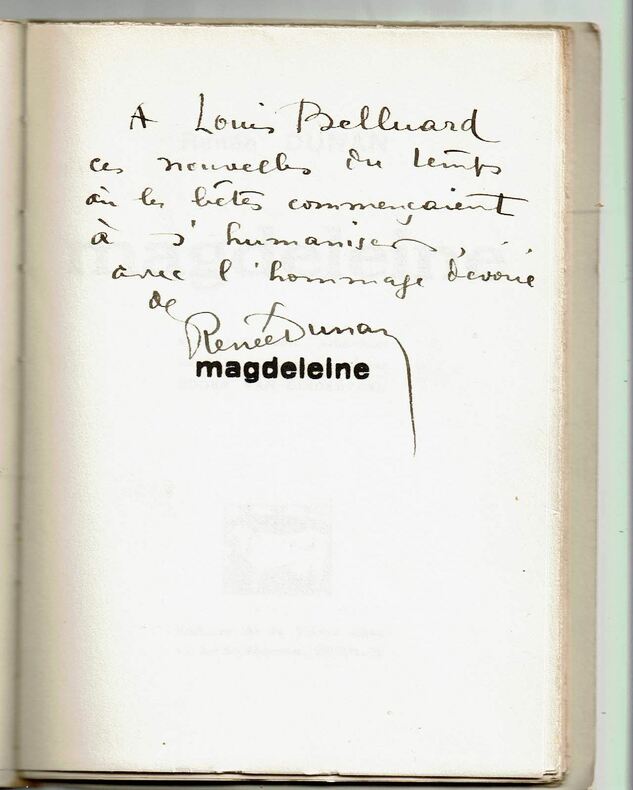 A Louis Belluard
ces nouvelles du temps
où les bêtes commençaient
à s'humaniser,
avec l'hommage dévoué
de
Renée Dunan
magdeleine
Renée DUNAN